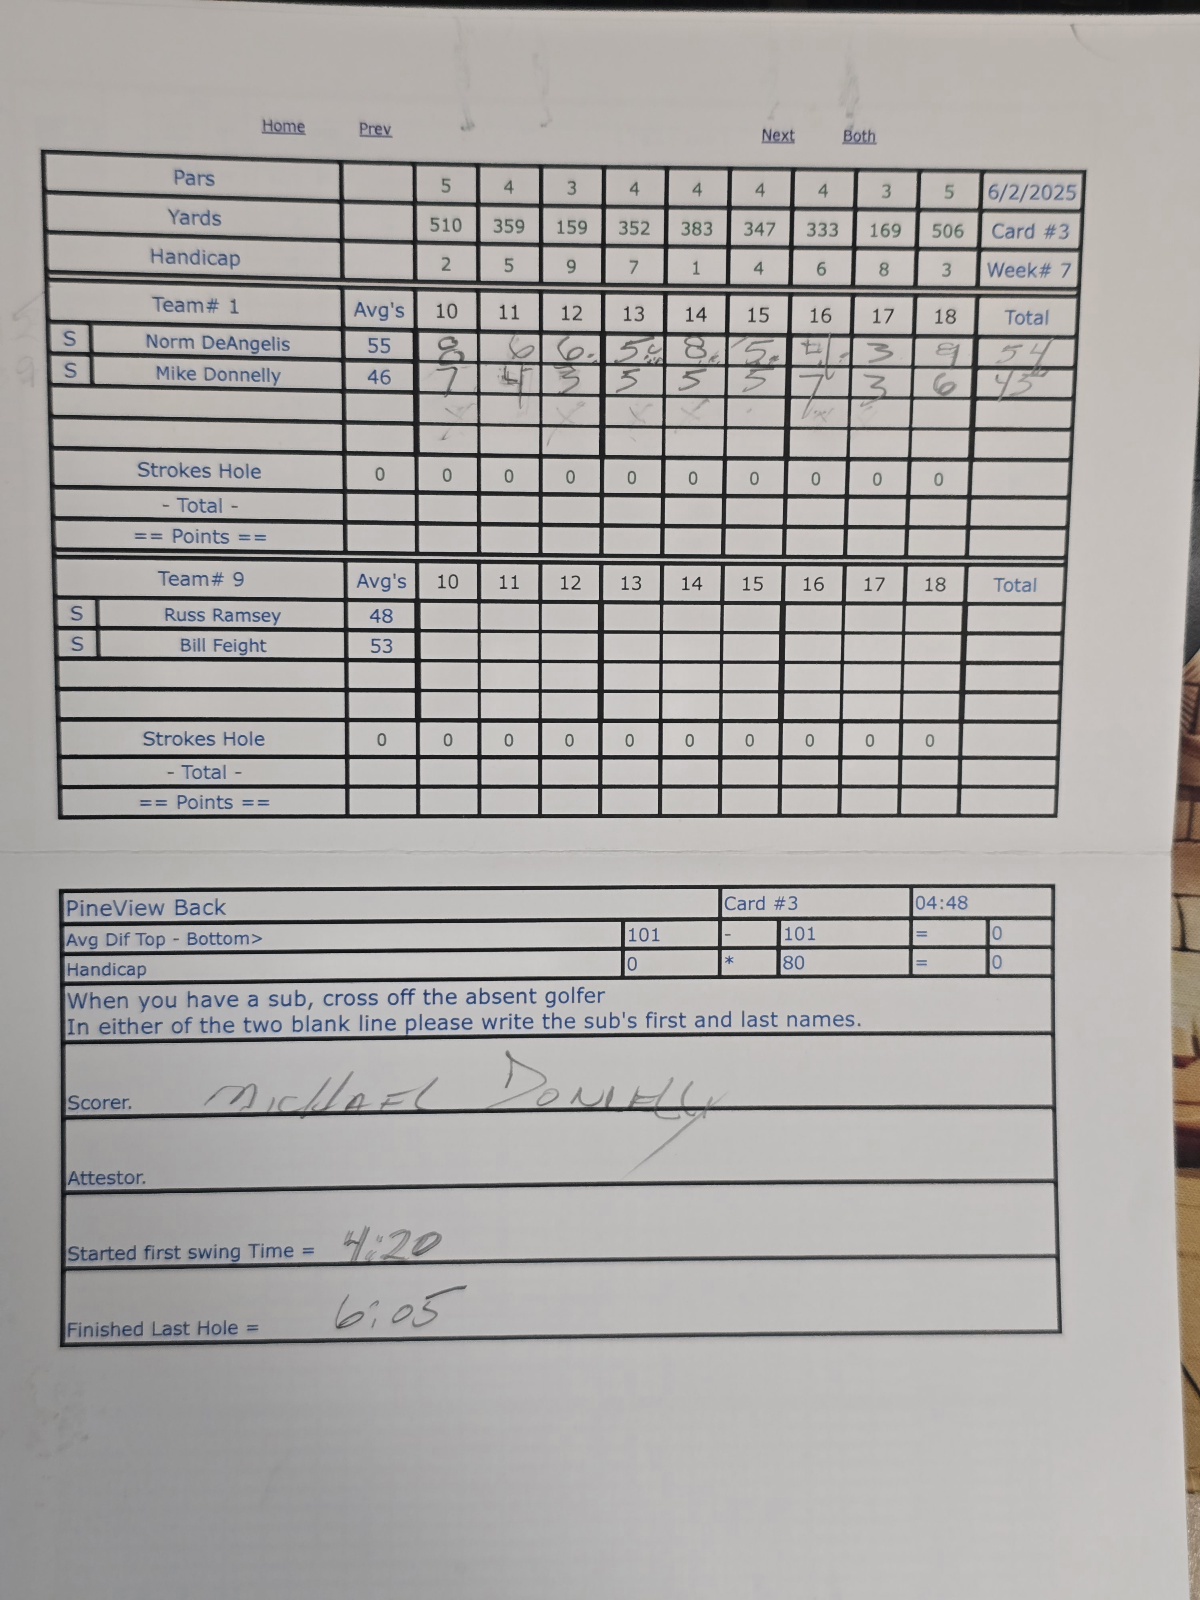 Home Prev Next Both
Pars 5 4 3 4 4 4 4 3 5 6/2/2025
Yards 510 359 159 352 383 347 333 169 506 Card #3
Handicap 2 5 9 7 1 4 6 8 3 Week# 7
Team# 1 Avg's 10 11 12 13 14 15 16 17 18 Total
S Norm DeAngelis 55 8 6 6 5 8 5 4 3 9 54
S Mike Donnelly 46 7 4 3 5 5 5 7 3 6 45
Strokes Hole 0 0 0 0 0 0 0 0 0 0
- Total -
== Points ==
Team# 9 Avg's 10 11 12 13 14 15 16 17 18 Total
S Russ Ramsey 48
S Bill Feight 53
Strokes Hole 0 0 0 0 0 0 0 0 0 0
- Total -
== Points ==
PineView Back Card #3 04:48
Avg Dif Top - Bottom> 101 - 101 = 0
Handicap 0 * 80 = 0
When you have a sub, cross off the absent golfer
In either of the two blank line please write the sub's first and last names.
Scorer. MICHAEL DONNELLY
Attestor.
Started first swing Time = 4:20
Finished Last Hole = 6:05